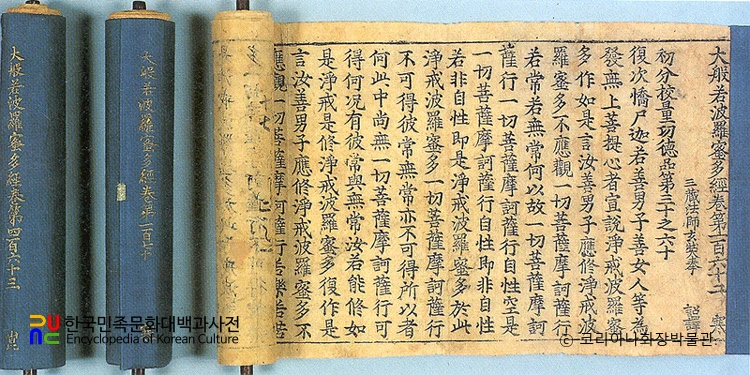 大般若波羅蜜多經卷第一百六十二 寒
三藏法師玄奘奉 詔譯
初分校量功德品第三十之六十
復次憍尸迦若善男子善女人等爲
發無上菩提心者宣說淨戒波羅蜜
多作如是言汝善男子應修淨戒波
羅蜜多不應觀一切菩薩摩訶薩行
若常若無常何以故一切菩薩摩訶
薩行一切菩薩摩訶薩行自性空是
一切菩薩摩訶薩行自性即非自性
若非自性即是淨戒波羅蜜多於此
淨戒波羅蜜多一切菩薩摩訶薩行
不可得彼常無常亦不可得所以者
何此中尚無一切菩薩摩訶薩行可
得何況有彼常與無常汝若能修如
是淨戒是修淨戒波羅蜜多復作是
言汝善男子應修淨戒波羅蜜多不
應觀一切菩薩摩訶薩行若樂若苦
大般若波羅蜜多經卷第一百七十
大般若波羅蜜多經卷第四百六十三 昆
한국민족문화대백과사전
Encyclopedia of Korean Culture
ⓒ 코리아나화장박물관